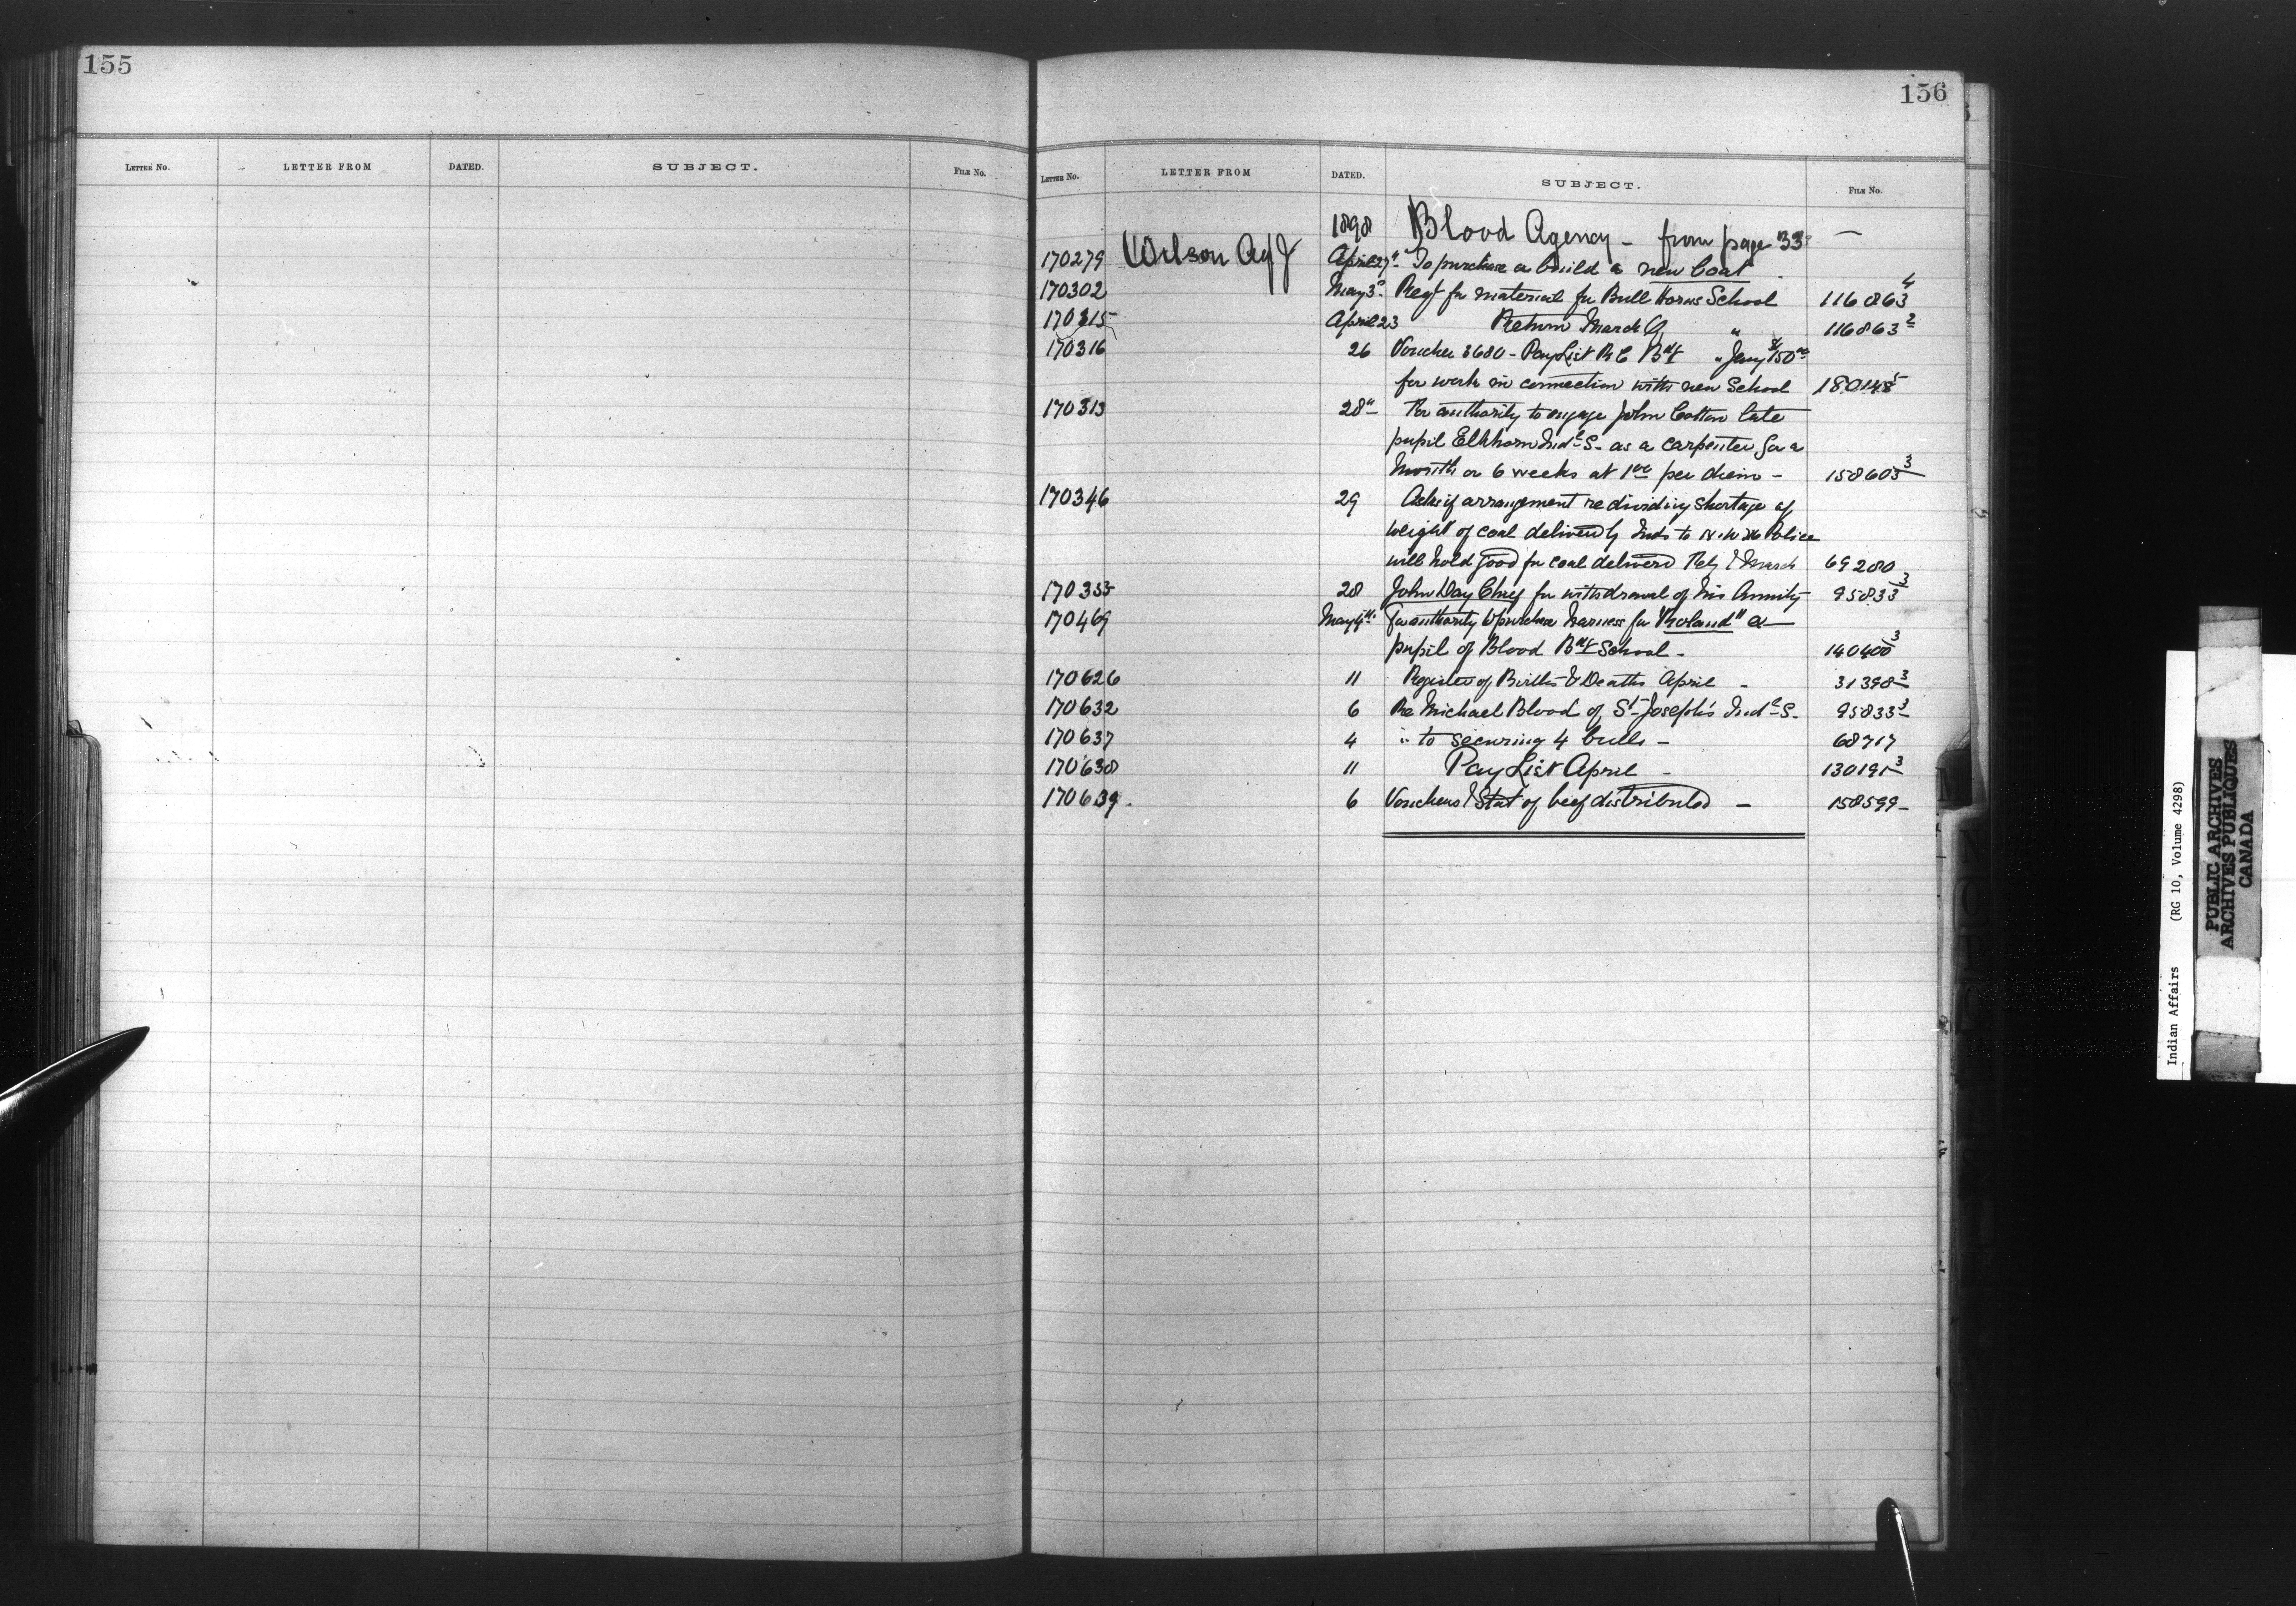 155
LETTER NO. LETTER FROM DATED. SUBJECT. FILE No.
156
LETTER NO. LETTER FROM DATED. SUBJECT. FILE No.
1898 Blood Agency - from page 33 -
170279 Wilson Agt J April 27" To purchase or build a new boat
170302 May 3d Reqt for material for Bull Horns School 116863 4
170315 April 23 Return March Q " 116863 2
170316 26 Voucher 3680 - Pay List R C Bdg " Jany $150 00
for work in connection with new School 180148 5
170313 28" For authority to engage John Cotton late
pupil Elkhorn Indl S. as a carpenter for a
month or 6 weeks at 1 00 per diem - 158603 3
170346 29 Asks if arrangement re dividing shortage of
weight of coal delivered by Inds to N.W.M Police
will hold good for coal delivered Feby & March 69280
170355 28 John Day Chief for withdrawal of his Annuity 95833 3
170469 May 4th For authority to purchase Harness for "Roland" a
pupil of Blood Bdg School - 140400 3
170626 11 Register of Births & Deaths April - 31398 3
170632 6 Re Michael Blood of St Joseph's Indl S. 95833 3
170637 4 " to securing 4 bulls - 68717
170638 11 Pay List April - 130191 3
170639. 6 Vouchers & Stat of beef distributed - 158599 -
Indian Affairs (RG 10, Volume 4298)
PUBLIC ARCHIVES
ARCHIVES PUBLIQUES
CANADA